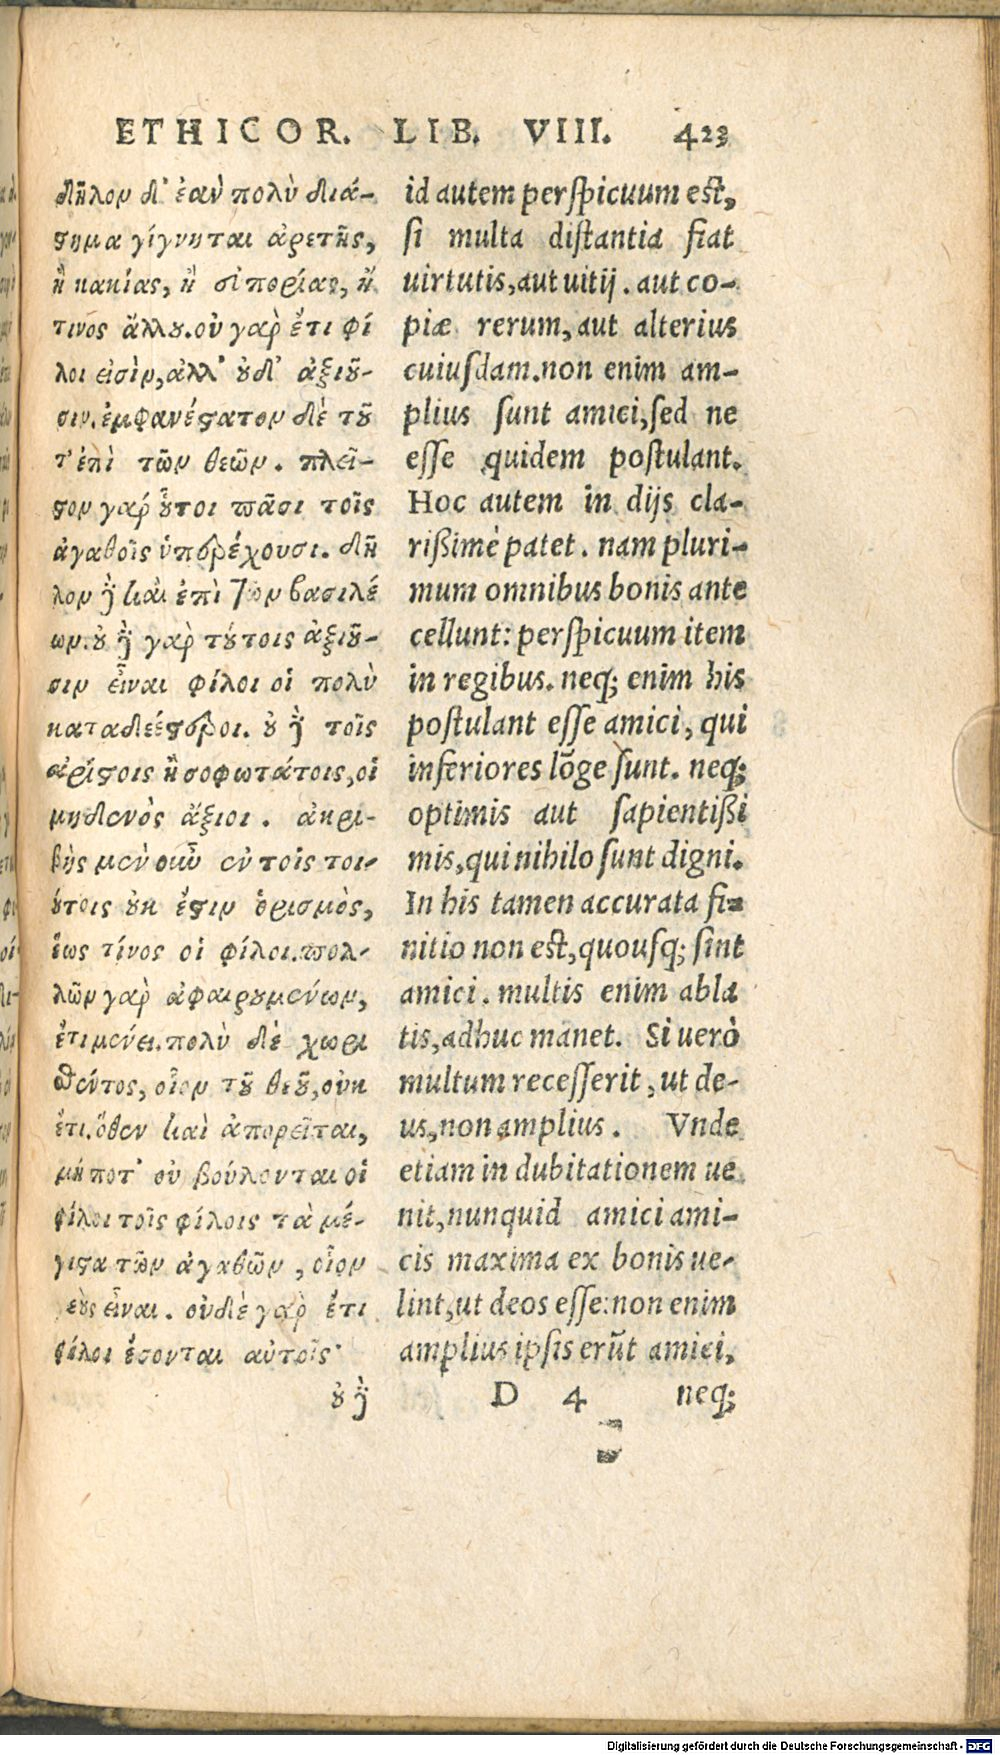 ETHICOR. LIB. VIII. 423
δῆλον δ' ἐὰν πολὺ διά-
στημα γίγνηται ἀρετῆς,
ἢ κακίας, ἢ εὐπορίας, ἤ
τινος ἄλλου. οὐ γὰρ ἔτι φί
λοι εἰσὶν, ἀλλ' οὐδ' ἀξιοῦ-
σιν. ἐμφανέστατον δὲ τοῦ
τ' ἐπὶ τῶν θεῶν. πλεῖ-
στον γὰρ οὗτοι πᾶσι τοῖς
ἀγαθοῖς ὑπερέχουσι. δῆ
λον δὲ καὶ ἐπὶ τῶν βασιλέ
ων. οὐδὲ γὰρ τούτοις ἀξιοῦ-
σιν εἶναι φίλοι οἱ πολὺ
καταδεέστεροι. οὐδὲ τοῖς
ἀρίστοις ἢ σοφωτάτοις, οἱ
μηδενὸς ἄξιοι. ἀκρι-
βὴς μὲν οὖν ἐν τοῖς τοι-
ούτοις οὐκ ἔστιν ὁρισμὸς,
ἕως τίνος οἱ φίλοι. πολ-
λῶν γὰρ ἀφαιρουμένων,
ἔτι μένει. πολὺ δὲ χωρι
σθέντος, οἷον τοῦ θεοῦ, οὐκ
ἔτι. ὅθεν καὶ ἀπορεῖται,
μή ποτ' οὐ βούλονται οἱ
φίλοι τοῖς φίλοις τὰ μέ-
γιστα τῶν ἀγαθῶν, οἷον
εοὺς εἶναι. οὐδὲ γὰρ ἔτι
φίλοι ἔσονται αὐτοῖς
οὐδὲ
id autem perspicuum est,
si multa distantia fiat
uirtutis, aut uitij. aut co-
piæ rerum, aut alterius
cuiusdam. non enim am-
plius sunt amici, sed ne
esse quidem postulant.
Hoc autem in dijs cla-
rißimè patet. nam pluri-
mum omnibus bonis ante
cellunt: perspicuum item
in regibus. neq; enim his
postulant esse amici, qui
inferiores lõge sunt. neq;
optimis aut sapientißi
mis, qui nihilo sunt digni.
In his tamen accurata fi-
nitio non est, quousq; sint
amici. multis enim abla
tis, adhuc manet. Si uerò
multum recesserit, ut de-
us, non amplius. Vnde
etiam in dubitationem ue
nit, nunquid amici ami-
cis maxima ex bonis ue-
lint, ut deos esse: non enim
amplius ipsis erũt amici,
D 4 neq;
Digitalisierung gefördert durch die Deutsche Forschungsgemeinschaft - DFG